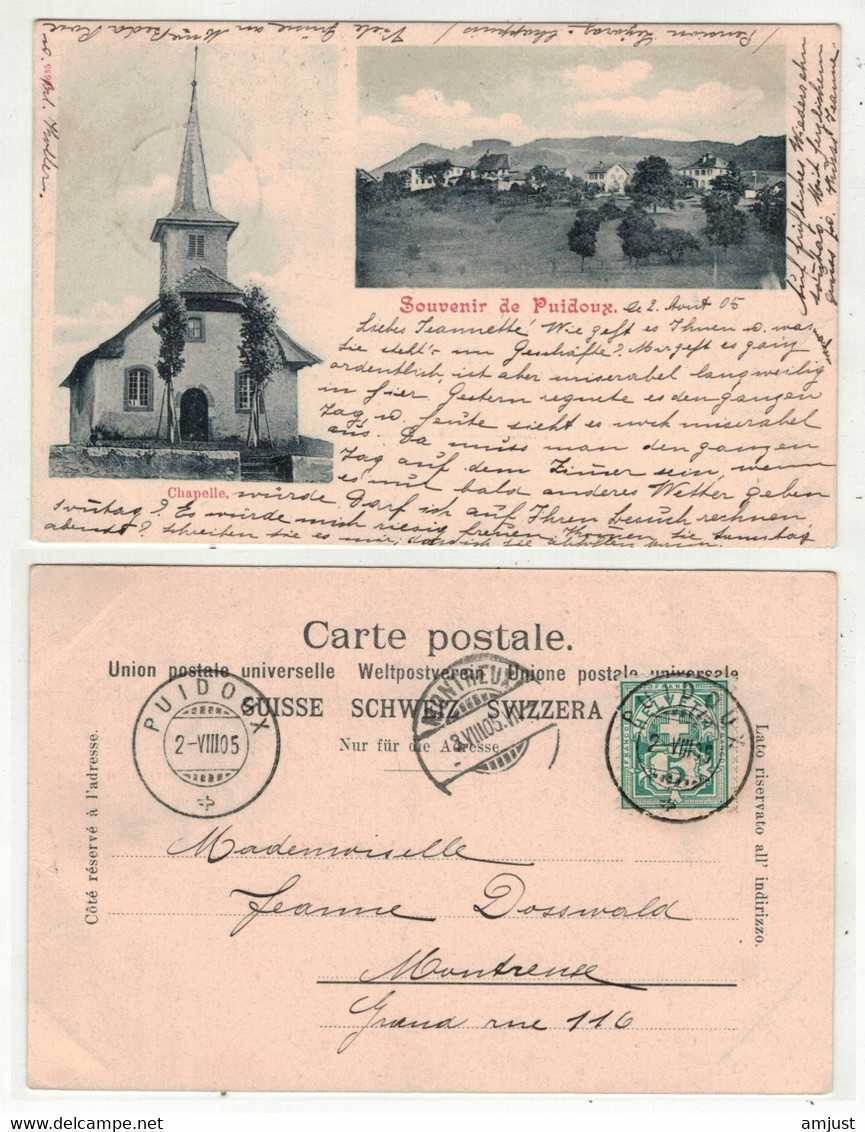 Pension Legeraz-Chappuis
Viele Grüsse an
Souvenir de Puidoux. le 2. Août 05
Liebes Jeannette! Wie geht es Ihnen u. was machen
Sie stets im Geschäfte? Mir geht es ganz
ordentlich, ist aber miserabel langweilig
in hier. Gestern regnete es den ganzen
Tag u. heute sieht es noch miserabel
aus. Da muss man den ganzen
Tag auf dem Zimmer sein, wenn
es nut bald anderes Wetter geben
würde. Darf ich auf Ihren Besuch rechnen,
Chapelle.
Sontag? Es würde mich riesig freuen. Kommen Sie Samstag
abends? Schreiben Sie es mir, dass ich Sie abholen kann.
Auf fröhliches Wiedersehn
Jeanne
Carte postale.
Union postale universelle Weltpostverein Unione postale universale
SUISSE SCHWEIZ SVIZZERA
Nur für die Adresse.
PUIDOUX
2-VIII05
MONTREUX
PUIDOUX
2-VIII05
FRANCO
HELVETIA
5
Côté réservé à l'adresse.
Lato riservato all' indirizzo.
Mademoiselle
Jeanne Dosswald
Montreux
Grand rue 116
amjust